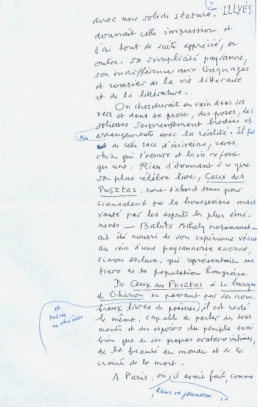 2 ILLYÉS
avec une solide stature.
donnait cette impression et
j'ai tout de suite apprécié, en
outre, sa simplicité paysanne,
son indifférence aux
de la vie littéraire
et de la littérature.
On chercherait en vain dans ses
vers et dans sa prose, des poses, des
ou
arrangements avec la réalité. Il fut
de cette race d'écrivains, rares,
chez qui l'œuvre et la vie ne font
qu'une. Rien d'étonnant à ce que
son plus célèbre livre, Ceux des
Pusztas, tout d'abord tenu pour
scandaleux par la bourgeoisie mais
vanté par les esprits les plus émi-
nents — Babits Mihály notamment —
ait été nourri de son expérience vécue
au sein d'une paysannerie asservie,
sinon esclave, qui représentait un
tiers de la population hongroise
De Ceux des Pusztas à la barque
de Charon en passant par ses nom-
breux livres de poèmes, il est resté
et
le même, capable de parler des tour-
ments et des espoirs du peuple aussi
bien que de ses propres
de la beauté du monde et de la
crainte de la mort.
A Paris, où il avait fait, comme
dans sa jeunesse